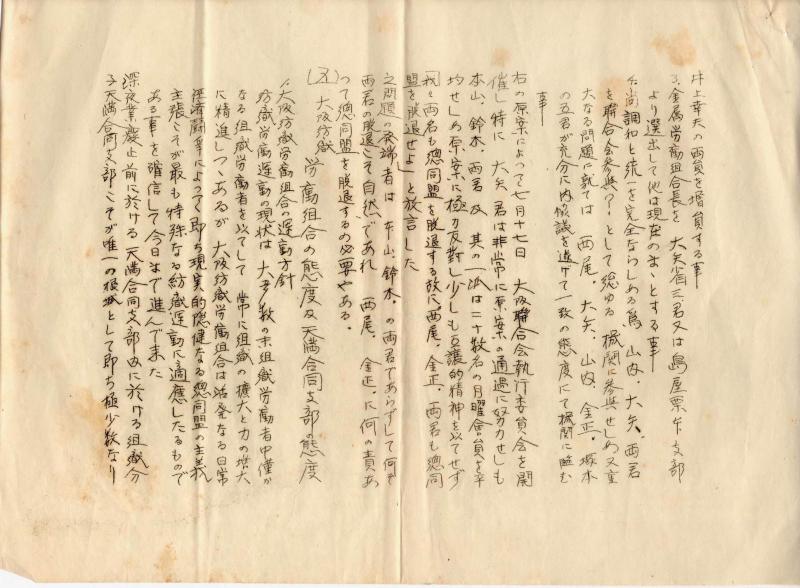 井上幸夫の両員を増員する事
3.金属労働組合長を 大矢省三君又は島屋票ヶ支部
より選出して他は現在のまゝとする事
4.尚調和と統一を完全ならしめる為 山内、大矢、両君
を聯合会参與?として総ゆる 機関に参與せしめ又重
大なる問題に就ては 西尾、大矢、山内、金正、塚本
の五君が充分に内協議を遂げて一致の態度にて機関に臨む
事
右の原案によって七月十七日 大阪聯合会執行委員会を開
催し特に 大矢君は非常に原案の通過に努力せしも
本山、鈴木、両君及 其の一派は二十数名の月曜会員を卒
均せしめ原案に極力反對し少しも互譲的精神を以てせず
「我々両名も総同盟を脱退する故に西尾、金正、両君も総同
盟を脱退せよ」と放言した
之問題の発端者は 本山、鈴木、の両君であらずして何ぞ
両君の脱退こそ自然であれ 西尾、金正、に何の責あ
って総同盟を脱退するの必要やある。
(五) 大阪紡織 労働組合の態度及天満合同支部の態度
1.大阪紡織労働組合の運動方針
紡織労働運動の現状は 大多数の未組織労働者中僅か
なる組織労働者を以てして 常に組織の擴大と力の増大
に精進しつゝあるが 大阪紡織労働組合は活発なる日常
経済闘争によって 即ち現実的穏健なる総同盟の主義
主張こそが最も特殊なる紡織運動に適應したるもので
ある事を確信して今日まで進んで来た
深夜業廃止前に於ける天満合同支部内に於ける組織分
子天満合同支部こそが唯一の根城として即ち極少数なり